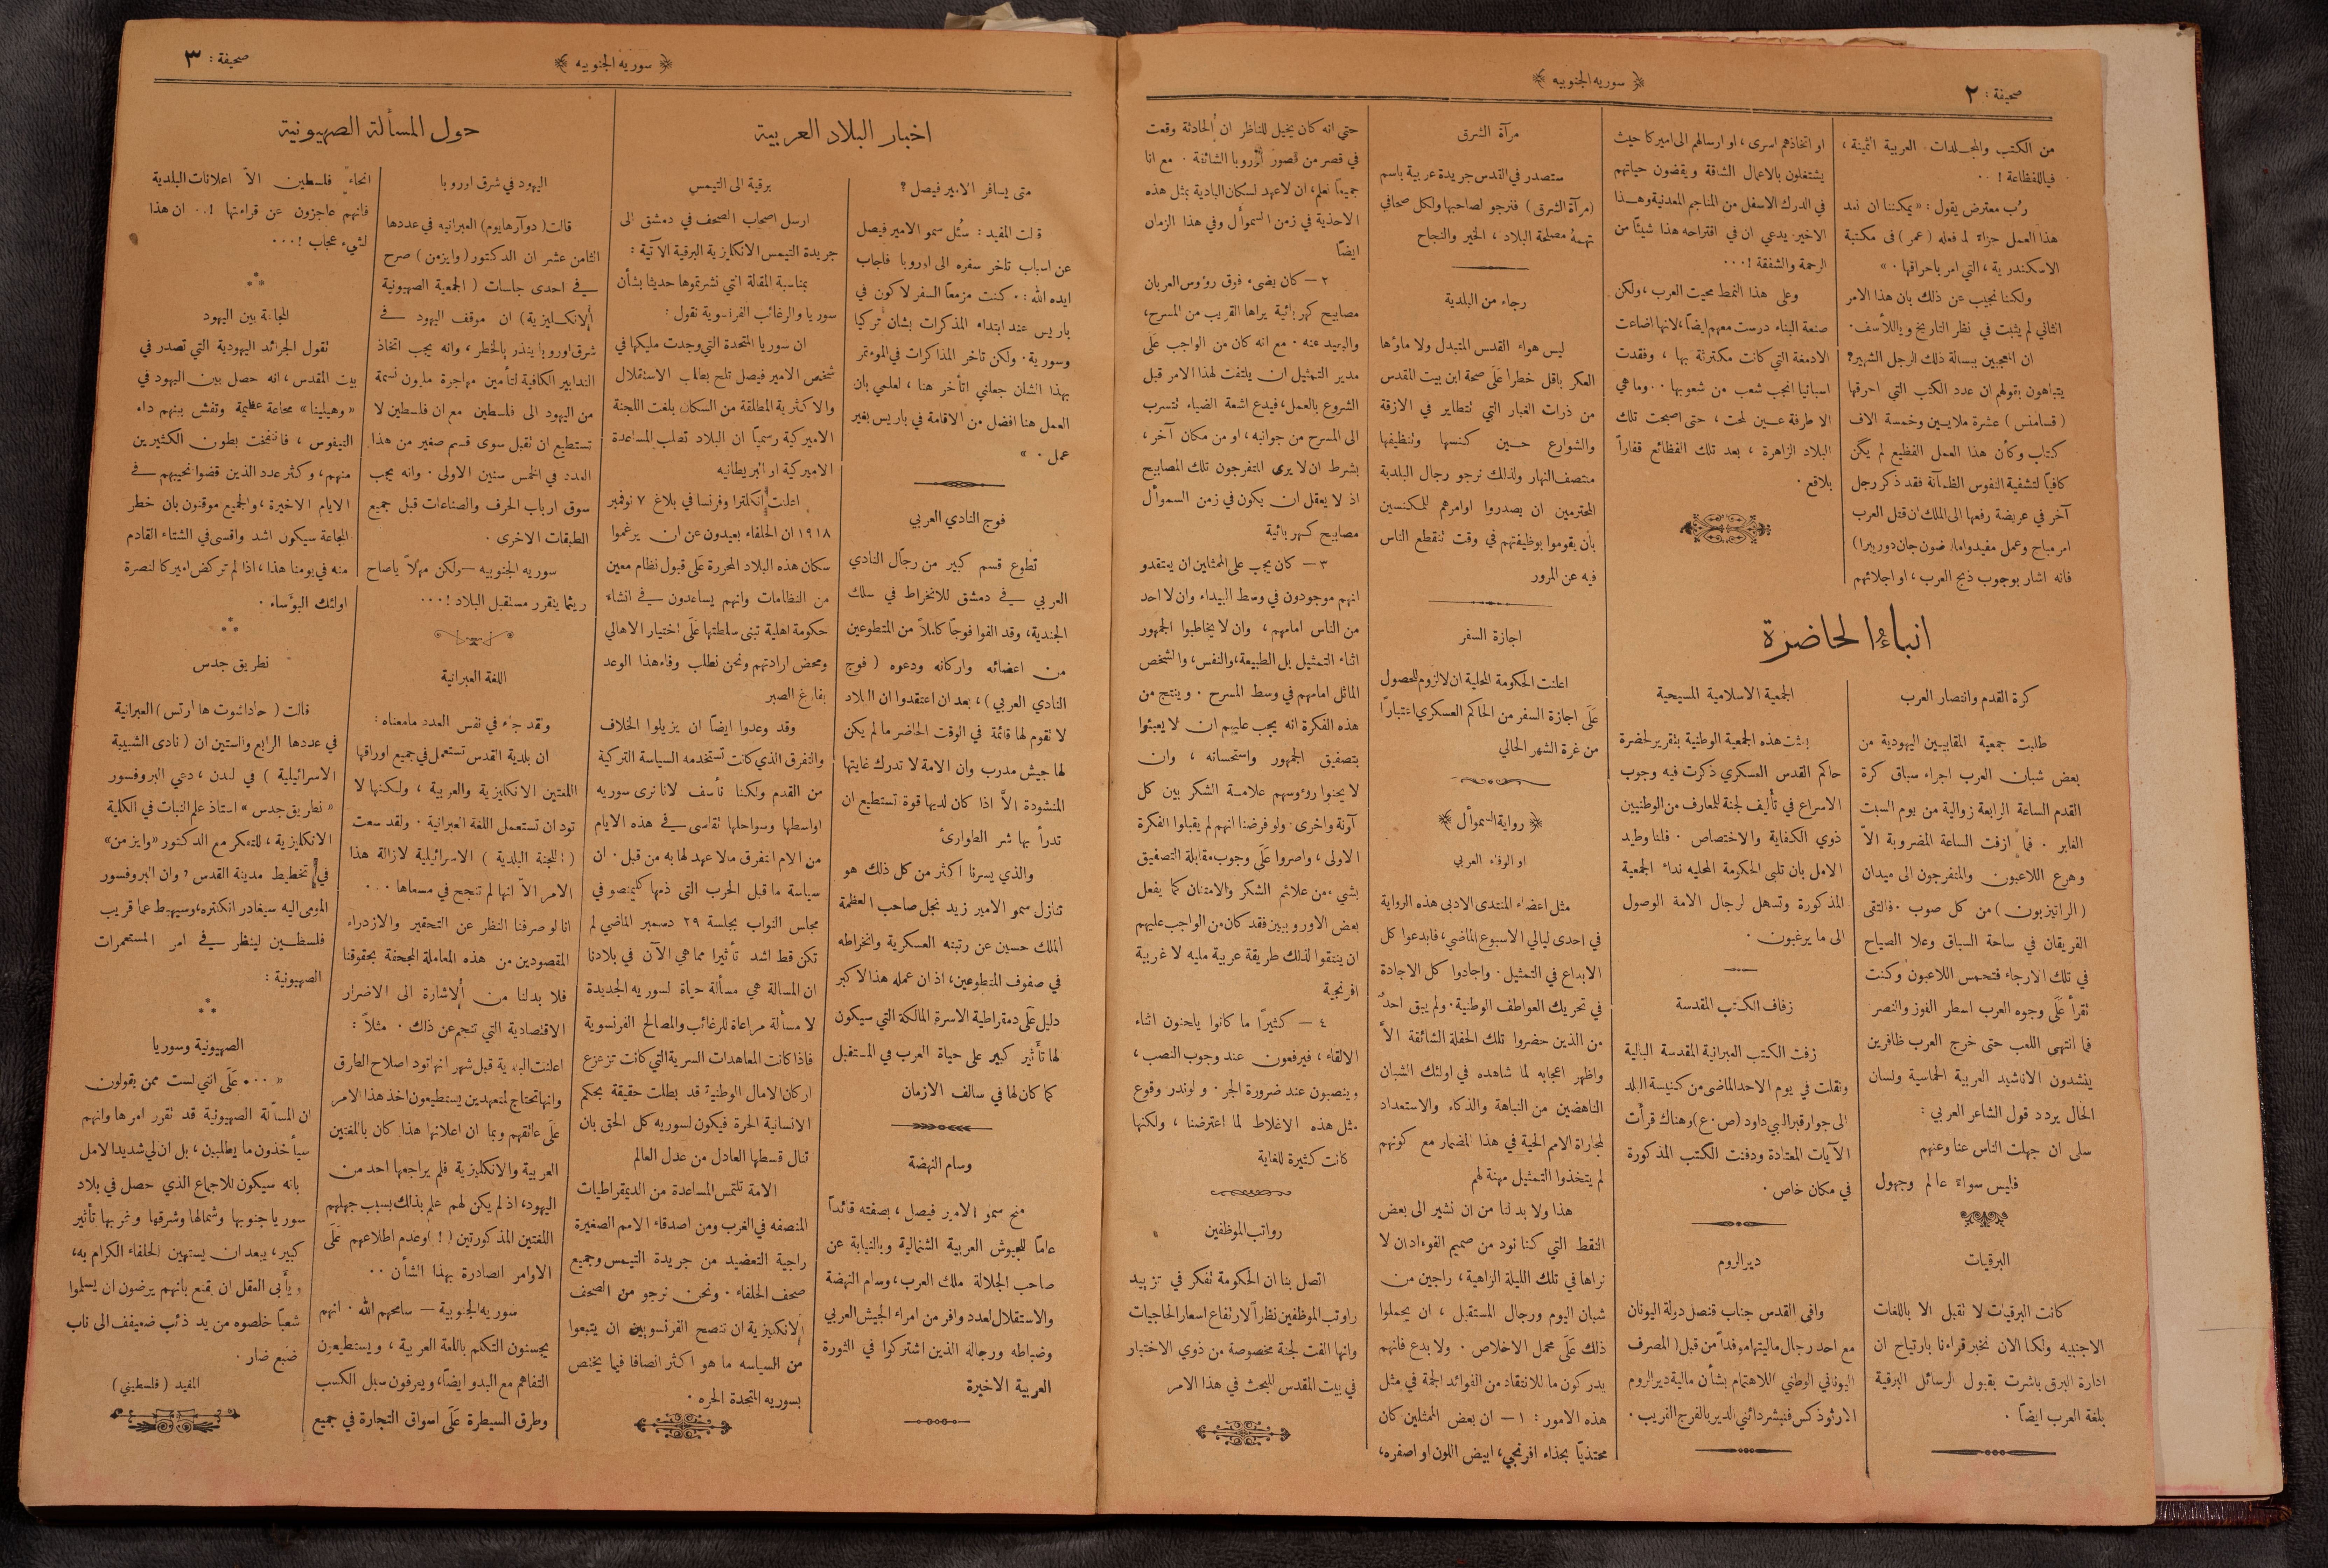 صحيفة : ٢
﴿ سوريه الجنوبيه ﴾
من الكتب والمجلدات العربية الثمينة ،
فياللفظاعة ! ..
رُب معترض يقول : « يمكننا ان نعد
هذا العمل جزاءً لما فعله ( عمر ) في مكتبة
الاسكندرية ، التي امر باحراقها . »
ولكننا نجيب عن ذلك بان هذا الامر
الثاني لم يثبت في نظر التاريخ وياللأسف.
ان المعجبين ببسالة ذلك الرجل الشهير؟
يتباهون بقولهم ان عدد الكتب التي احرقها
( قسامنس ) عشرة ملايين وخمسة الاف
كتاب وكأن هذا العمل الفظيع لم يكن
كافياً لتشفية النفوس الظمآنة فقد ذكر رجل
آخر في عريضة رفعها الى الملك ان قتل العرب
امر مباح وعمل مفيد وامارضون جان دوريبرا)
فانه اشار بوجوب ذبح العرب ، او اجلائهم
او اتخاذهم اسرى ، او ارسالهم الى اميركا حيث
يشتغلون بالاعمال الشاقة ويقضون حياتهم
في الدرك الاسفل من المناجم المعدنية وهذا
الاخير يدعي ان في اقتراحه هذا شيئًا من
الرحمة والشفقة ! ...
وعلى هذا النمط محيت العرب ، ولكن
صنعة البناء درست معهم ايضاً ، لانها اضاعت
الادمغة التي كانت مكترثة بها ، وفقدت
اسبانيا انجب شعب من شعوبها . . وما هي
الا طرفة عين لمحت ، حتى اصبحت تلك
البلاد الزاهرة ، بعد تلك الفظائع قفاراً
بلاقع .
انباء الحاضرة
كرة القدم وانتصار العرب
طلبت جمعية المقابيين اليهودية من
بعض شبان العرب اجراء سباق كرة
القدم الساعة الرابعة زوالية من يوم السبت
الغابر . فما ازفت الساعة المضروبة الاّ
وهرع اللاعبون والمتفرجون الى ميدان
( الراتيزبون ) من كل صوب . فالتقى
الفريقان في ساحة السباق وعلا الصياح
في تلك الارجاء فتحمس اللاعبون وكنت
تقرأ عَلَى وجوه العرب اسطر الفوز والنصر
فما انتهى اللعب حتى خرج العرب ظافرين
ينشدون الاناشيد العربية الحماسية ولسان
الحال يردد قول الشاعر العربي :
سلي ان جهلت الناس عنا وعنهم
فليس سواءً عالم وجهول
البرقيات
كانت البرقيات لا تقبل الا باللغات
الاجنبيه ولكنا الان نخبر قراءنا بارتياح ان
ادارة البرق باشرت بقبول الرسائل البرقية
بلغة العرب ايضاً .
الجمعية الاسلامية المسيحية
بعثت هذه الجمعية الوطنية بتقرير لحضرة
حاكم القدس العسكري ذكرت فيه وجوب
الاسراع في تأليف لجنة للمعارف من الوطنيين
ذوي الكفاية والاختصاص . فلنا وطيد
الامل بان تلبي الحكومة المحليه نداء الجمعية
المذكورة وتسهل لرجال الامة الوصول
الى ما يرغبون .
زفاف الكتب المقدسة
زفت الكتب العبرانية المقدسة البالية
ونقلت في يوم الاحد الماضي من كنيسة البلد
الى جوار قبر النبي داود (ص . ع) وهناك قرأت
الآيات المعتادة ودفنت الكتب المذكورة
في مكان خاص .
دير الروم
وافى القدس جناب قنصل دولة اليونان
مع احد رجال ماليتها موفداً من قبل ( المصرف
اليوناني الوطني ) للاهتمام بشأن مالية دير الروم
الارثوذكس فنبشر دائني الدير بالفرج القريب .
مرآة الشرق
ستصدر في القدس جريدة عربية باسم
(مرآة الشرق ) فنرجو لصاحبها ولكل صحافي
تهمهُ مصلحة البلاد ، الخير والنجاح
رجاء من البلدية
ليس هواء القدس المتبدل ولا ماؤها
العكر باقل خطراً عَلَى صحة ابن بيت المقدس
من ذرات الغبار التي تتطاير في الازقة
والشوارع حين كنسها وتنظيفها
منتصف النهار ولذلك نرجو رجال البلدية
المحترمين ان يصدروا اوامرهم للمكنسين
بان يقوموا بوظيفتهم في وقت تنقطع الناس
فيه عن المرور
اجازة السفر
اعلنت الحكومة المحلية ان لا لزوم للحصول
عَلَى اجازة السفر من الحاكم العسكري اعتباراً
من غرة الشهر الحالي
﴿ رواية السموأل ﴾
او الوفاء العربي
مثل اعضاء المنتدى الادبي هذه الرواية
في احدى ليالي الاسبوع الماضي ، فابدعوا كل
الابداع في التمثيل . واجادوا كل الاجادة
في تحريك العواطف الوطنية . ولم يبق احدٌ
من الذين حضروا تلك الحفلة الشائقة الاَّ
واظهر اعجابه لما شاهده في اولئك الشبان
الناهضين من النباهة والذكاء والاستعداد
لمجاراة الامم الحية في هذا المضمار مع كونهم
لم يتخذوا التمثيل مهنة لهم
هذا ولا بد لنا من ان نشير الى بعض
النقط التي كنا نود من صميم الفوءاد ان لا
نراها في تلك الليلة الزاهية ، راجين من
شبان اليوم ورجال المستقبل ، ان يحملوا
ذلك عَلَى محمل الاخلاص . ولا بدع فانهم
يدركون ما للانتقاد من الفوائد الجمة في مثل
هذه الامور : ١ — ان بعض الممثلين كان
محتذياً بحذاء افرنجي ، ابيض اللون او اصفره ،
حتى انه كان يخيل للناظر ان الحادثة وقعت
في قصر من قصور أوروبا الشائقة . مع انا
جميعاً نعلم ، ان لا عهد لسكان البادية بمثل هذه
الاحذية في زمن السموأل وفي هذا الزمان
ايضاً
٢ — كان يضيء فوق روءوس العربان
مصابيح كهربائية يراها القريب من المسرح ،
والبعيد عنه . مع انه كان من الواجب عَلَى
مدير التمثيل ان يلتفت لهذا الامر قبل
الشروع بالعمل ، فيدع اشعة الضياء تتسرب
الى المسرح من جوانبه ، او من مكان آخر ،
بشرط ان لا يرى المتفرجون تلك المصابيح
اذ لا يعقل ان يكون في زمن السموأل
مصابيح كهربائية
٣ — كان يجب على الممثلين ان يعتقدو
انهم موجودون في وسط البيداء وان لا احد
من الناس امامهم ، وان لا يخاطبوا الجمهور
اثناء التمثيل بل الطبيعة ، والنفس ، والشخص
الماثل امامهم في وسط المسرح . وينتج من
هذه الفكرة انه يجب عليهم ان لا يعبئوا
بتصفيق الجمهور واستحسانه ، وان
لا يحنوا روءوسهم علامة الشكر بين كل
آونة واخرى . ولو فرضنا انهم لم يقبلوا الفكرة
الاولى ، واصروا عَلَى وجوب مقابلة التصفيق
بشيء من علائم الشكر والامتنان كما يفعل
بعض الاوروبيين فقد كان من الواجب عليهم
ان ينتقوا لذلك طريقة عربية مليه لا غربية
افرنجية
٤ — كثيرًا ما كانوا يلحنون اثناء
الالقاء ، فيرفعون عند وجوب النصب ،
وينصبون عند ضرورة الجر . ولو ندر وقوع
مثل هذه الاغلاط لما اعترضنا ، ولكنها
كانت كثيرة للغاية
رواتب الموظفين
اتصل بنا ان الحكومة تفكر في تزييد
راوتب الموظفين نظراً لارتفاع اسعار الحاجيات
وانها الفت لجنة مخصوصة من ذوي الاختبار
في بيت المقدس للبحث في هذا الامر
﴿ سوريه الجنوبيه ﴾
صحيفة : ٣
اخبار البلاد العربية
متى يسافر الامير فيصل ؟
قالت المفيد : سُئل سمو الامير فيصل
عن اسباب تأخر سفره الى اوروبا فاجاب
ايده الله : « كنت مزمعاً السفر لاكون في
باريس عند ابتداء المذكرات بشان تركيا
وسورية . ولكن تاخر المذاكرات في الموءتمر
بهذا الشان جعلني اتأخر هنا ، لعلمي بان
العمل هنا افضل من الاقامة في باريس بغير
عمل . »
فوج النادي العربي
تطوع قسم كبير من رجال النادي
العربي في دمشق للانخراط في سلك
الجندية ، وقد الفوا فوجًا كاملاً من المتطوعين
من اعضائه واركانه ودعوه ( فوج
النادي العربي ) ، بعد ان اعتقدوا ان البلاد
لا تقوم لها قائمة في الوقت الحاضر ما لم يكن
لها جيش مدرب وان الامة لا تدرك غايتها
المنشودة الاَّ اذا كان لديها قوة تستطيع ان
تدرأ بها شر الطوارئ
والذي يسرنا اكثر من كل ذلك هو
تنازل سمو الامير زيد نجل صاحب العظمة
الملك حسين عن رتبته العسكرية وانخراطه
في صفوف المتطوعين ، اذ ان عمله هذا لاكبر
دليل عَلَى دمقراطية الاسرة المالكة التي سيكون
لها تأثير كبير على حياة العرب في المستقبل
كما كان لها في سالف الازمان
وسام النهضة
منح سمو الامير فيصل ، بصفته قائداً
عاماً للجيوش العربية الشمالية وبالنيابة عن
صاحب الجلالة ملك العرب ، وسام النهضة
والاستقلال لعدد وافر من امراء الجيش العربي
وضباطه ورجاله الذين اشتركوا في الثورة
العربية الاخيرة
برقية الى التيمس
ارسل اصحاب الصحف في دمشق الى
جريدة التيمس الانكليزية البرقية الآتية :
بمناسبة المقالة التي نشرتموها حديثا بشأن
سوريا والرغائب الفرنسوية نقول :
ان سوريا المتحدة التي وجدت مليكها في
شخص الامير فيصل تلح بطلب الاستقلال
والاكثرية المطلقة من السكان بلغت اللجنة
الاميركية رسمياً ان البلاد تطلب المساعدة
الاميركية او البريطانيه
اعلنت انكلترا وفرنسا في بلاغ ٧ نوفمبر
١٩١٨ ان الحلفاء بعيدون عن ان يرغموا
سكان هذه البلاد المحررة عَلَى قبول نظام معين
من النظامات وانهم يساعدون في انشاء
حكومة اهلية تبنى سلطتها عَلَى اختيار الاهالي
ومحض ارادتهم ونحن نطلب وفاء هذا الوعد
بفارغ الصبر
وقد وعدوا ايضاً ان يزيلوا الخلاف
والتفرق الذي كانت تستخدمه السياسة التركية
من القدم ولكنا نأسف لانا نرى سوريه
اواسطها وسواحلها تقاسي في هذه الايام
من الام التفرق مالا عهد لها به من قبل . ان
سياسة ما قبل الحرب التي ذمها كليمنصو في
مجلس النواب بجلسة ٢٩ دسمبر الماضي لم
تكن قط اشد تأثيرا مما هي الآن في بلادنا
ان المسالة هي مسألة حياة لسوريه الجديدة
لا مسألة مراعاة للرغائب والمصالح الفرنسوية
فاذا كانت المعاهدات السرية التي كانت تزعزع
اركان الامال الوطنية قد بطلت حقيقة بحكم
الانسانية الحرة فيكون لسوريه كل الحق بان
تنال قسطها العادل من عدل العالم
الامة تلتمس المساعدة من الديمقراطيات
المنصفه في الغرب ومن اصدقاء الامم الصغيرة
راجية التعضيد من جريدة التيمس وجميع
صحف الحلفاء . ونحن نرجو من الصحف
الانكليزية ان تنصح الفرنسويين ان يتبعوا
من السياسه ما هو اكثر انصافا فيما يختص
بسوريه المتحدة الحره .
حول المسألة الصهيونية
اليهود في شرق اوروبا
قالت ( دوآرهايوم ) العبرانيه في عددها
الثامن عشر ان الدكتور ( وايزمن ) صرح
في احدى جلسات ( الجمعية الصهيونية
الانكليزية ) ان موقف اليهود في
شرق اوروبا ينذر بالخطر ، وانه يجب اتخاذ
التدابير الكافية لتأمين مهاجرة مليون نسمة
من اليهود الى فلسطين مع ان فلسطين لا
تستطيع ان تقبل سوى قسم صغير من هذا
العدد في الخمس سنين الاولى . وانه يجب
سوق ارباب الحرف والصناعات قبل جميع
الطبقات الاخرى .
سوريه الجنوبيه — ولكن مهلاً ياصاح
ريثما يتقرر مستقبل البلاد ! ...
اللغة العبرانية
ولقد جاء في نفس العدد ما معناه :
ان بلدية القدس تستعمل في جميع اوراقها
اللغتين الانكليزية والعربية ، ولكنها لا
تود ان تستعمل اللغة العبرانية . ولقد سعت
( اللجنة البلدية ) الاسرائيلية لازالة هذا
الامر الاّ انها لم تنجح في مسعاها . .
انا لو صرفنا النظر عن التحقير والازدراء
المقصودين من هذه المعاملة المجحفة بحقوقنا
فلا بد لنا من الاشارة الى الاضرار
الاقتصادية التي تنجم عن ذلك . مثلاً :
اعلنت البلدية قبل شهر انها تود اصلاح الطرق
وانها تحتاج لمتعهدين يستطيعون اخذ هذا الامر
عَلَى عاتقهم وبما ان اعلانها هذا كان باللغتين
العربية والانكليزية فلم يراجعها احد من
اليهود ، اذ لم يكن لهم علم بذلك بسبب جهلهم
اللغتين المذكورتين ! ! وعدم اطلاعهم عَلَى
الاوامر الصادرة بهذا الشأن . .
سوريه الجنوبية — سامحهم الله . انهم
يحسنون التكلم باللغة العربية ، ويستطيعون
التفاهم مع البدو ايضاً ، ويعرفون سبل الكسب
وطرق السيطرة عَلَى اسواق التجارة في جميع
انحاء فلسطين الاّ اعلانات البلدية
فانهم عاجزون عن قراءتها ! . . ان هذا
لشيء عجاب ! . . .
المجاعة بين اليهود
تقول الجرائد اليهودية التي تصدر في
بيت المقدس ، انه حصل بين اليهود في
« وهيلينا » مجاعة عظيمة وتفشى بينهم داء
التيفوس ، فانتفخت بطون الكثيرين
منهم ، وكثر عدد الذين قضوا نحيبهم في
الايام الاخيرة ، والجميع موقنون بان خطر
المجاعة سيكون اشد واقسى في الشتاء القادم
منه في يومنا هذا ، اذا لم تركض اميركا لنصرة
اولئك البوءساء .
نطريق جدس
قالت ( حاداشوت ها ارتس ) العبرانية
في عددها الرابع والستين ان ( نادى الشبيبة
الاسرائيلية ) في لندن ، دعى البروفسور
« نطريق جدس » استاذ علم النبات في الكلية
الانكليزية ، للتفكر مع الدكتور «وايزمن»
في تخطيط مدينة القدس ، وان البروفسور
المومى اليه سيغادر انكلتره ، وسيهبط عما قريب
فلسطين لينظر في امر المستعمرات
الصهيونية :
الصهيونية وسوريا
« . . . عَلَى انني لست ممن يقولون
ان المسألة الصهيونية قد تقرر امرها وانهم
سيأخذون ما يطلبون ، بل ان لي شديد الامل
بانه سيكون للاجماع الذي حصل في بلاد
سوريا جنوبها وشمالها وشرقها وغربها تأثير
كبير ، يبعد ان يستهين الحلفاء الكرام به ،
ويأبى العقل ان يقنع بانهم يرضون ان يسلموا
شعباً خلصوه من يد ذئب ضعيف الى ناب
ضبع ضار .
المفيد ( فلسطيني )